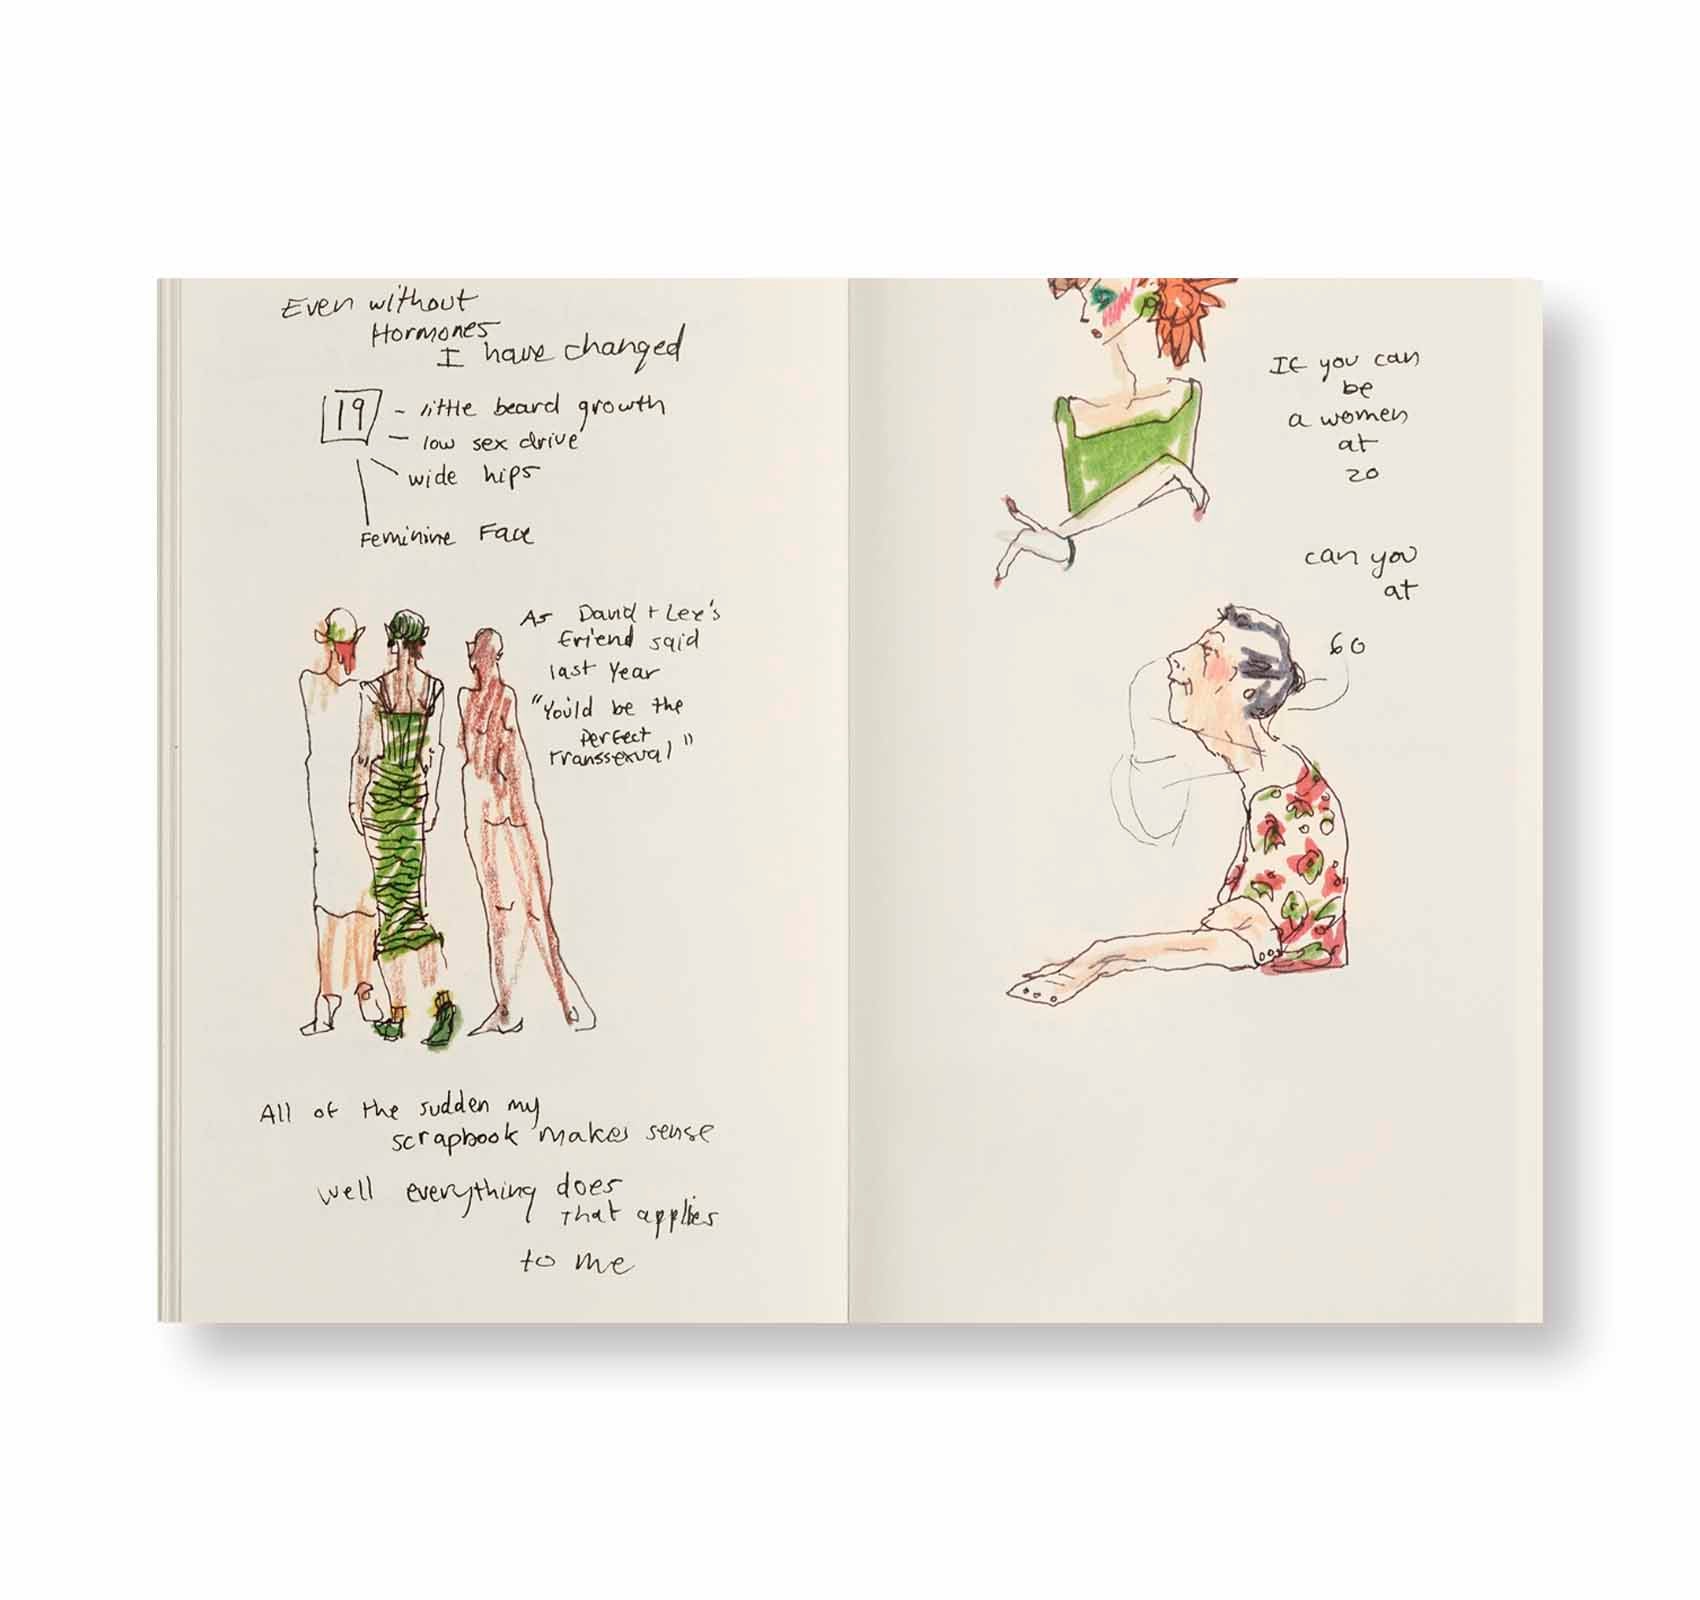 Even without
Hormones
I have changed
19 - little beard growth
- low sex drive
wide hips
Feminine Face
As David + Lee's
friend said
last Year
"You'd be the
perfect
transsexual"
All of the sudden my
scrapbook makes sense
well everything does
that applies
to me
If you can
be
a women
at
20
can you
at
60